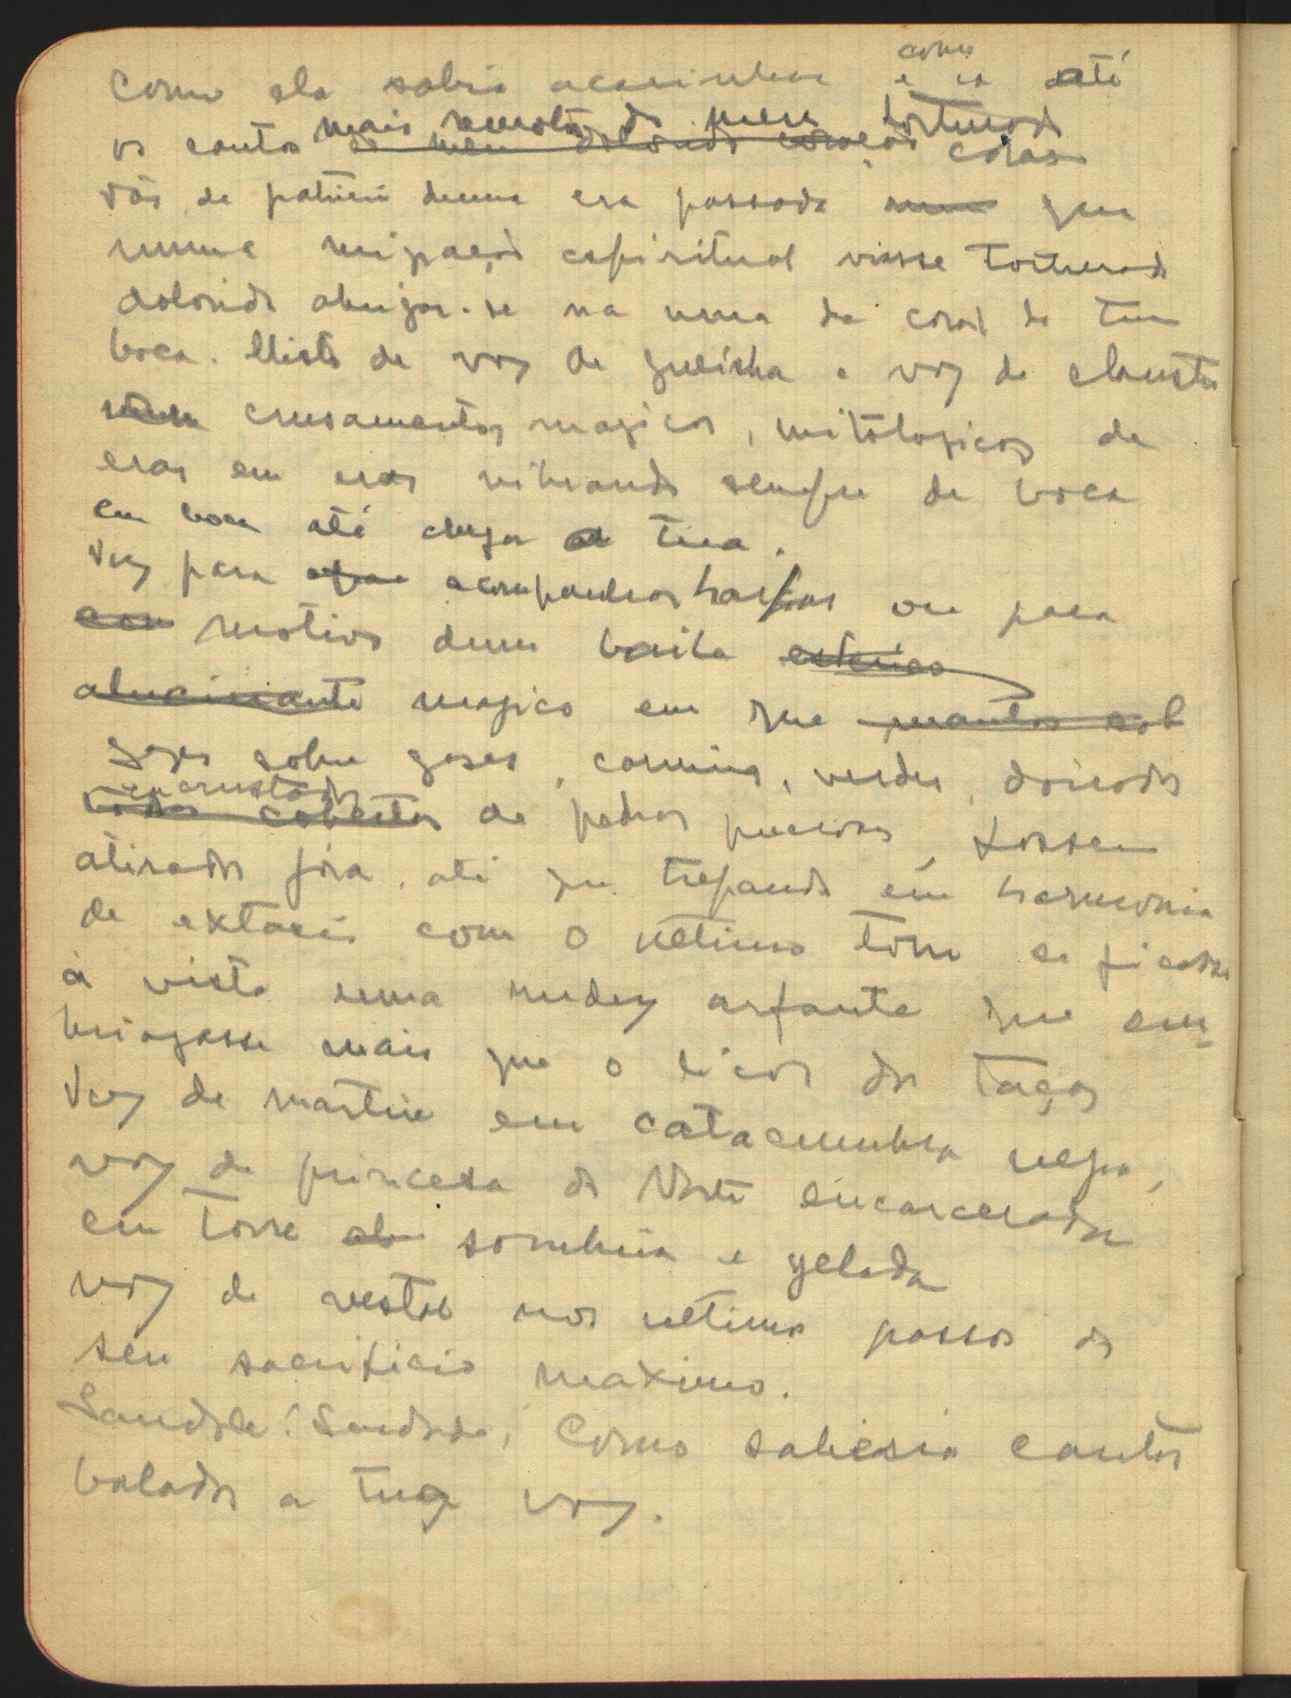 como
Como ela sabia acarinhar e ia até
mais remotos do meu torturado
os cantos do meu dolorido coração coras
de dum era passada que
numa migração espiritual viesse torturado
dolorido abrigar-se na urna de coral da tua
boca. Misto de voz de gueisha e voz de claustro
crusamentos magicos, mitologicos de
eras em eras vibrando sempre de boca
em boca até chegar a tua.
Voz para acompanhar harpas ou para
motivo dum baile esterico
alucinante magico em que mantos sob
gazes sobre gazes, carmins, verdes, doirados
encrustados
todos cobertos de pedras preciosas, fossem
atirados fóra, até que trepando em harmonia
de extasis com o ultimo tom se ficasse
à vista uma nudez arfante que em-
briagasse mais que o licor das taças
Voz de martire em catacumba negra,
voz de princesa do Norte encarcerada
em torre sombria e gelada
voz de vestal nos ultimos passos do
seu sacrificio maximo.
Saudade! Saudade! Como saberia cantar
baladas a tua voz.